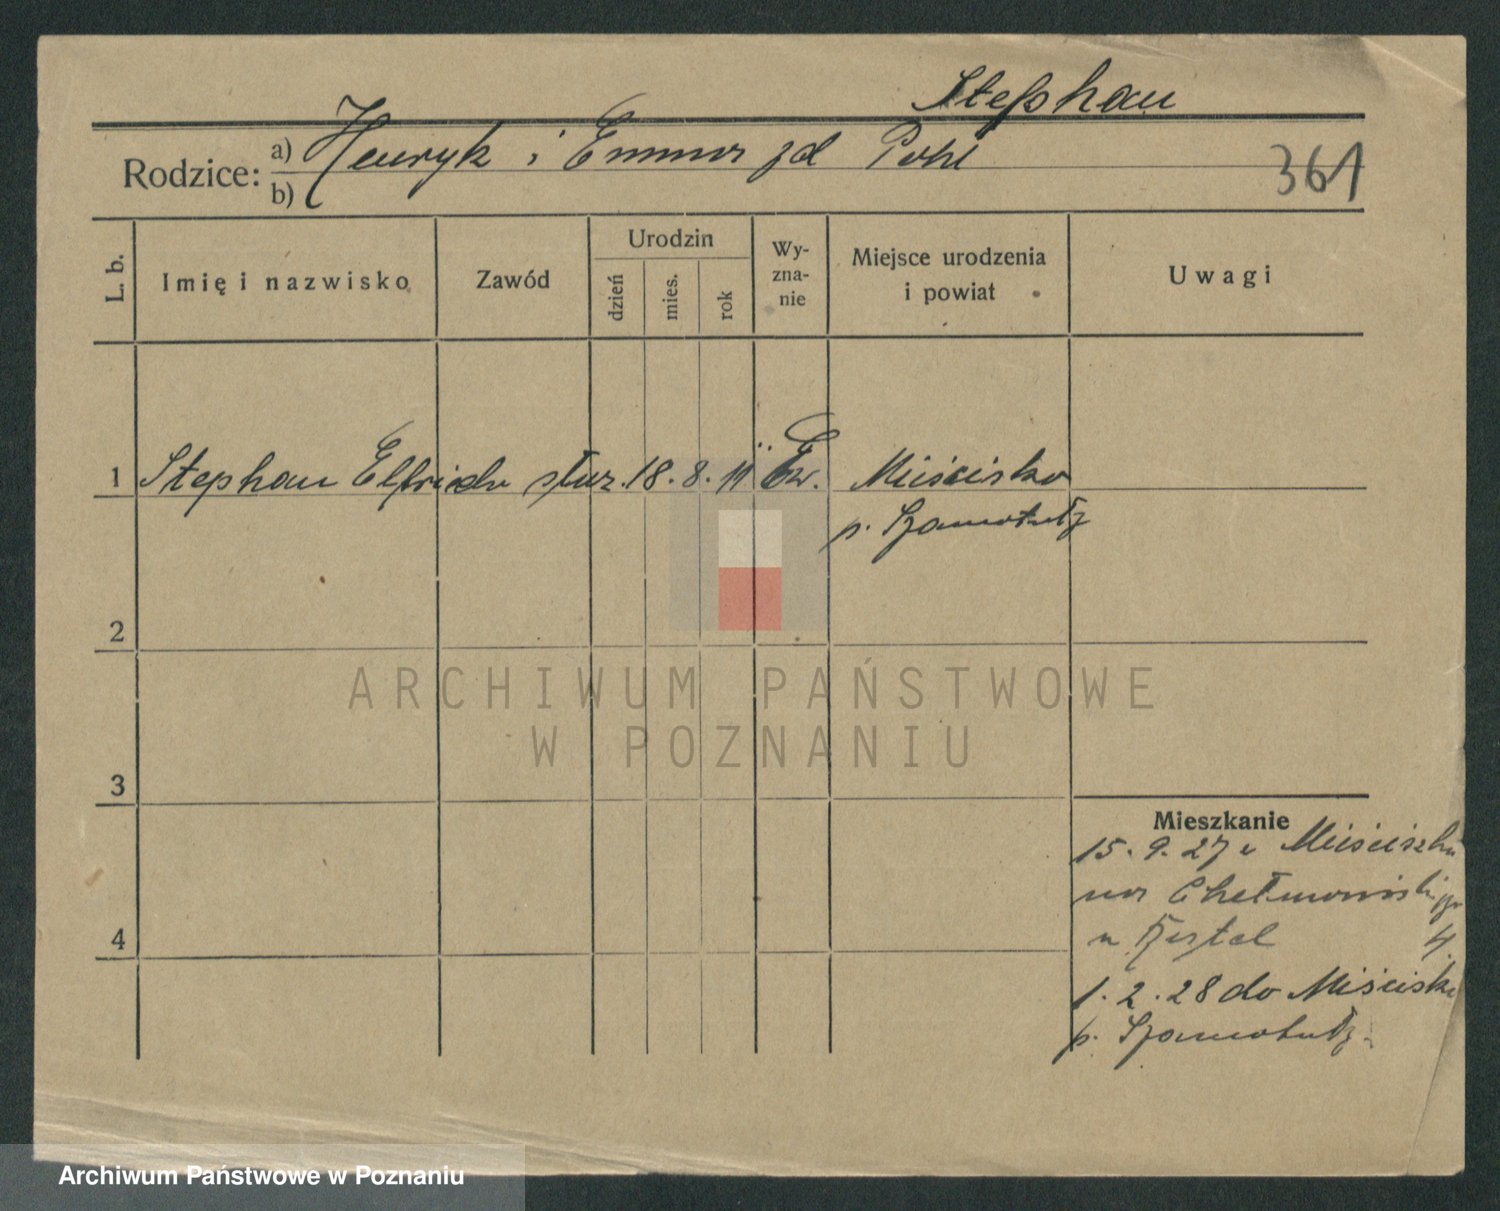 Stephan
Rodzice: a) Henryk i Emma zd Pohl
b)
361
L. b.
Imię i nazwisko
Zawód
Urodzin
dzień
mies.
rok
Wy-
zna-
nie
Miejsce urodzenia
i powiat
Uwagi
1 Stephan Elfrida służ. 18. 8. 11 Ew. Mieścisko
p. Szamotuły
2
ARCHIWUM PAŃSTWOWE
W POZNANIU
3
Mieszkanie
15. 9. 27 z Mieściska
na
4
u 4
1. 2. 28 do Mieścisk
p. Szamotuły
Archiwum Państwowe w Poznaniu